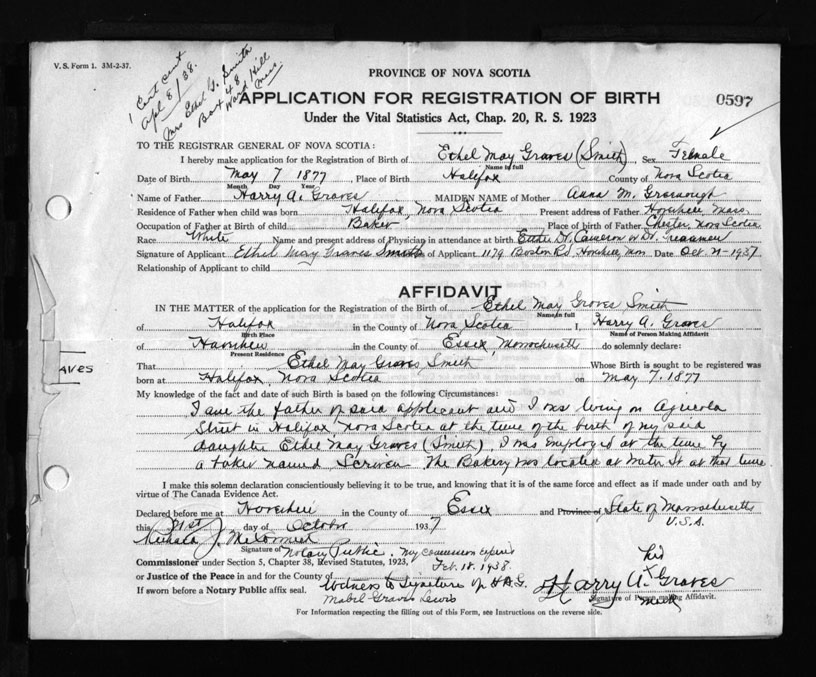 V. S. Form 1. 3M-2-37.
1 Cert sent
Apl 8/38.
Mrs Ethel G. Smith
Box 48
Ward Hill
Mass
PROVINCE OF NOVA SCOTIA
APPLICATION FOR REGISTRATION OF BIRTH
0597
Under the Vital Statistics Act, Chap. 20, R. S. 1923
TO THE REGISTRAR GENERAL OF NOVA SCOTIA:
I hereby make application for the Registration of Birth of Ethel May Graves (Smith), Sex Female
Name in full
Date of Birth May 7 1877, Place of Birth Halifax County of Nova Scotia
Month Day Year
Name of Father Harry A. Graves MAIDEN NAME of Mother Anna M. Greenough
Residence of Father when child was born Halifax, Nova Scotia Present address of Father Haverhill, Mass.
Occupation of Father at Birth of child Baker Place of birth of Father Chester Nova Scotia
Race White Name and present address of Physician in attendance at birth Either Dr. Cameron or Dr.
Signature of Applicant Ethel May Graves Smith of Applicant 1179 Boston Rd, Haverhill, Mass. Date Oct. 21-1937
Relationship of Applicant to child
AFFIDAVIT
IN THE MATTER of the application for the Registration of the Birth of Ethel May Graves Smith
Name in full
of Halifax in the County of Nova Scotia I, Harry A. Graves
Birth Place Name of Person Making Affidavit
of Haverhill in the County of Essex, Massachusetts do solemnly declare:
Present Residence
AVES
That Ethel May Graves Smith Whose Birth is sought to be registered was
born at Halifax, Nova Scotia on May 7. 1877
My knowledge of the fact and date of such Birth is based on the following Circumstances:
I am the father of said applicant and I was living on Agricola
Street in Halifax Nova Scotia at the time of the birth of my said
daughter Ethel May Graves (Smith). I was employed at the time by
a baker named Scriven. The Bakery was located at Water St at that time.
I make this solemn declaration conscientiously believing it to be true, and knowing that it is of the same force and effect as if made under oath and by
virtue of The Canada Evidence Act.
Declared before me at Haverhill in the County of Essex and Province of State of Massachusetts
this 21st day of October 1937 U.S.A.
J. McCormick
Signature of Notary Public. My commission expires
Commissioner under Section 5, Chapter 38, Revised Statutes, 1923, Feb. 18. 1938.
or Justice of the Peace in and for the County of
Witness to Signature of H.A.G.
his
Harry A. X Graves
mark
If sworn before a Notary Public affix seal.
Mabel Graves Lewis
Signature of Person making Affidavit.
For Information respecting the filling out of this Form, see Instructions on the reverse side.